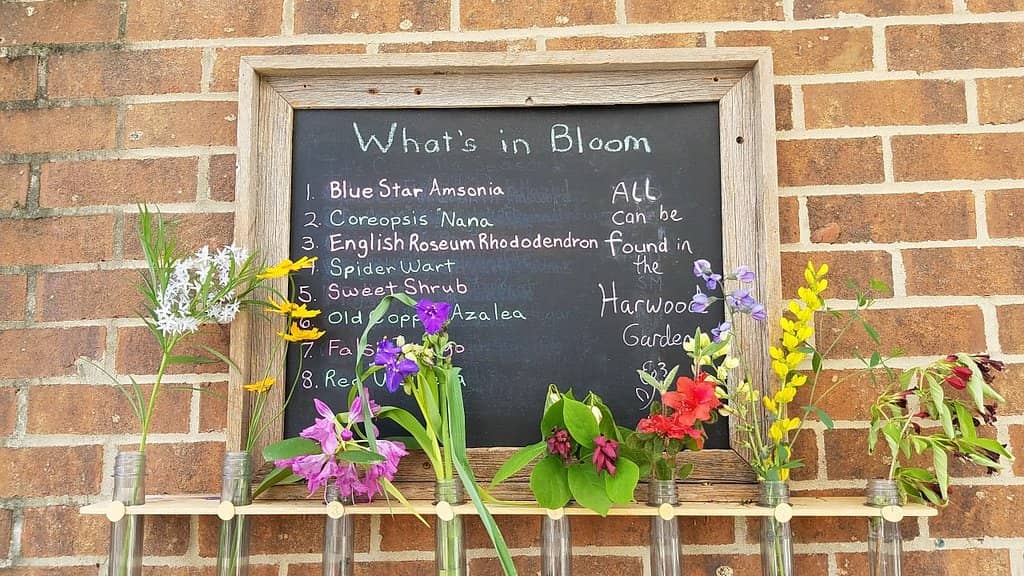 What's in Bloom
1. Blue Star Amsonia
2. Coreopsis "Nana
3. English Roseum Rhododendron
Spider Wart
5. Sweet Shrub
Old Azalea
7.
8.
All
can be
found in
the
Harwood
Garden